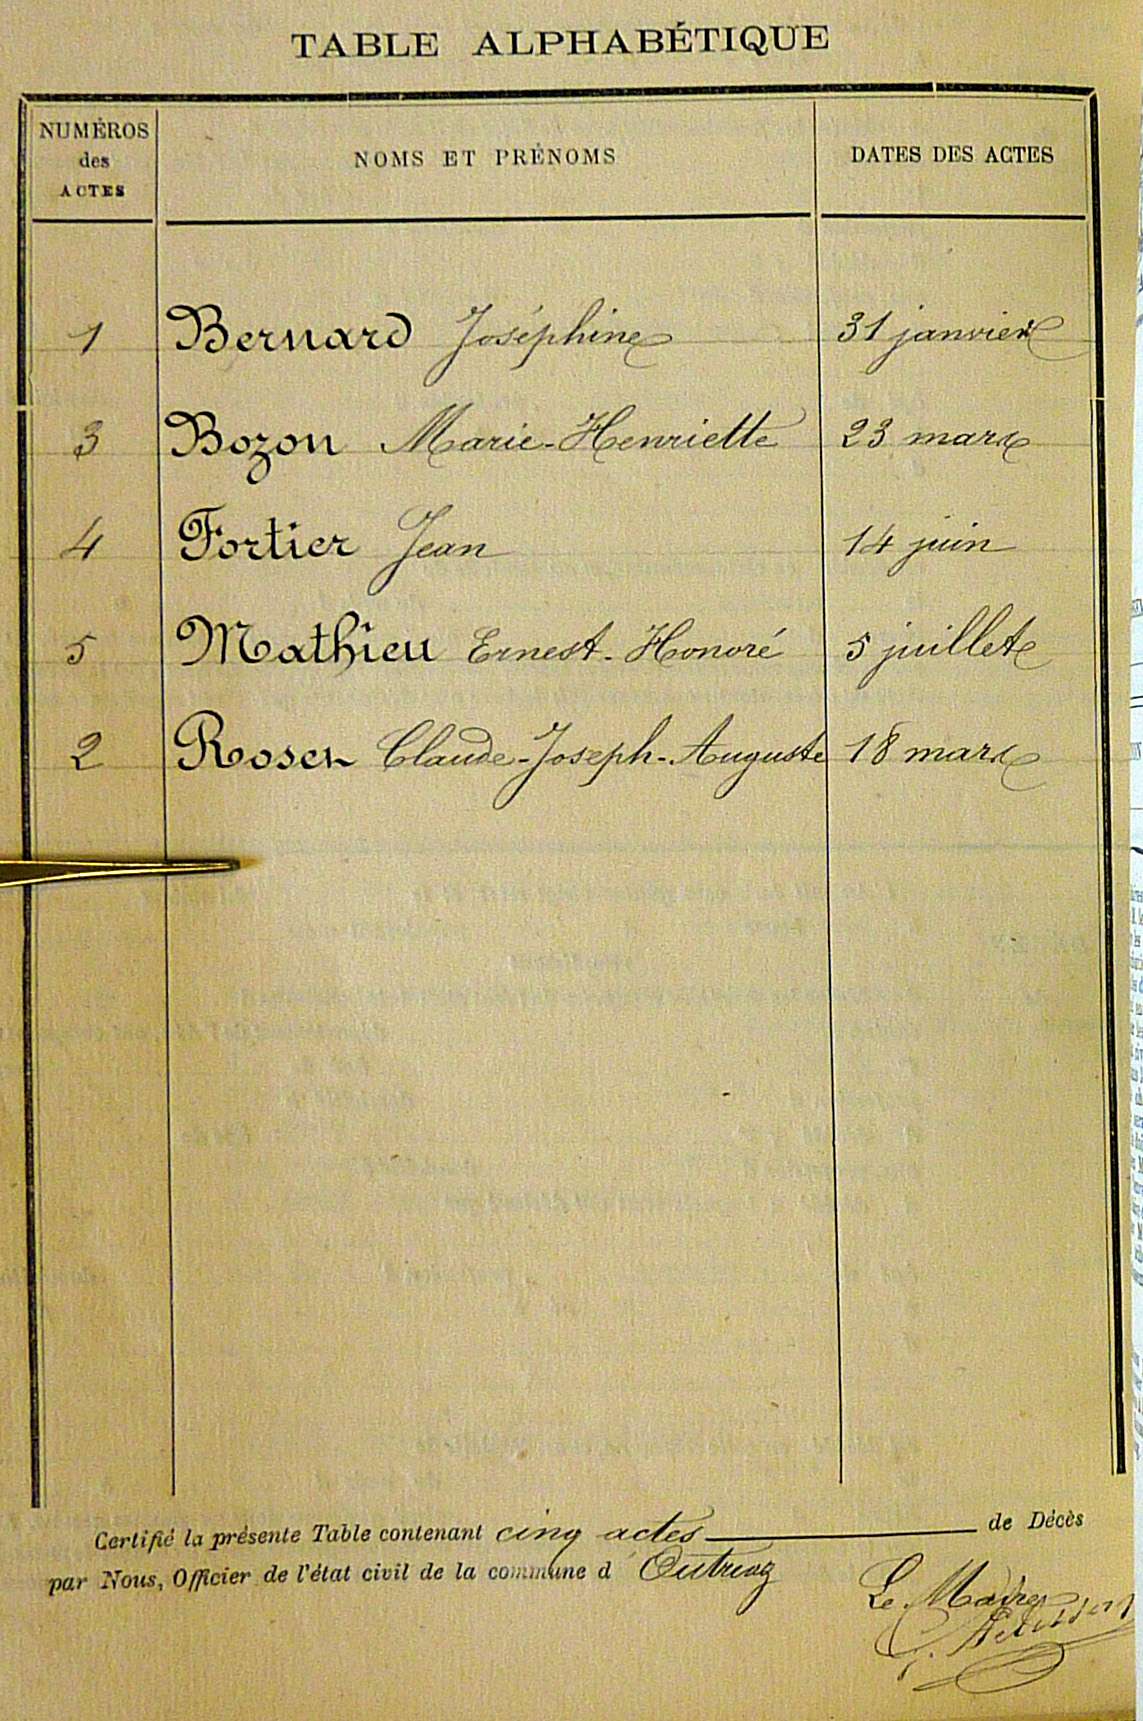 TABLE ALPHABÉTIQUE
NUMÉROS des ACTES NOMS ET PRÉNOMS DATES DES ACTES
1 Bernard Joséphine 31 janvier
3 Bozon Marie-Henriette 23 mars
4 Fortier Jean 14 juin
5 Mathieu Ernest-Honoré 5 juillet
2 Rosen Claude-Joseph-Auguste 18 mars
Certifié la présente Table contenant cinq actes de Décès
par Nous, Officier de l'état civil de la commune d'Outriaz
Le Maire